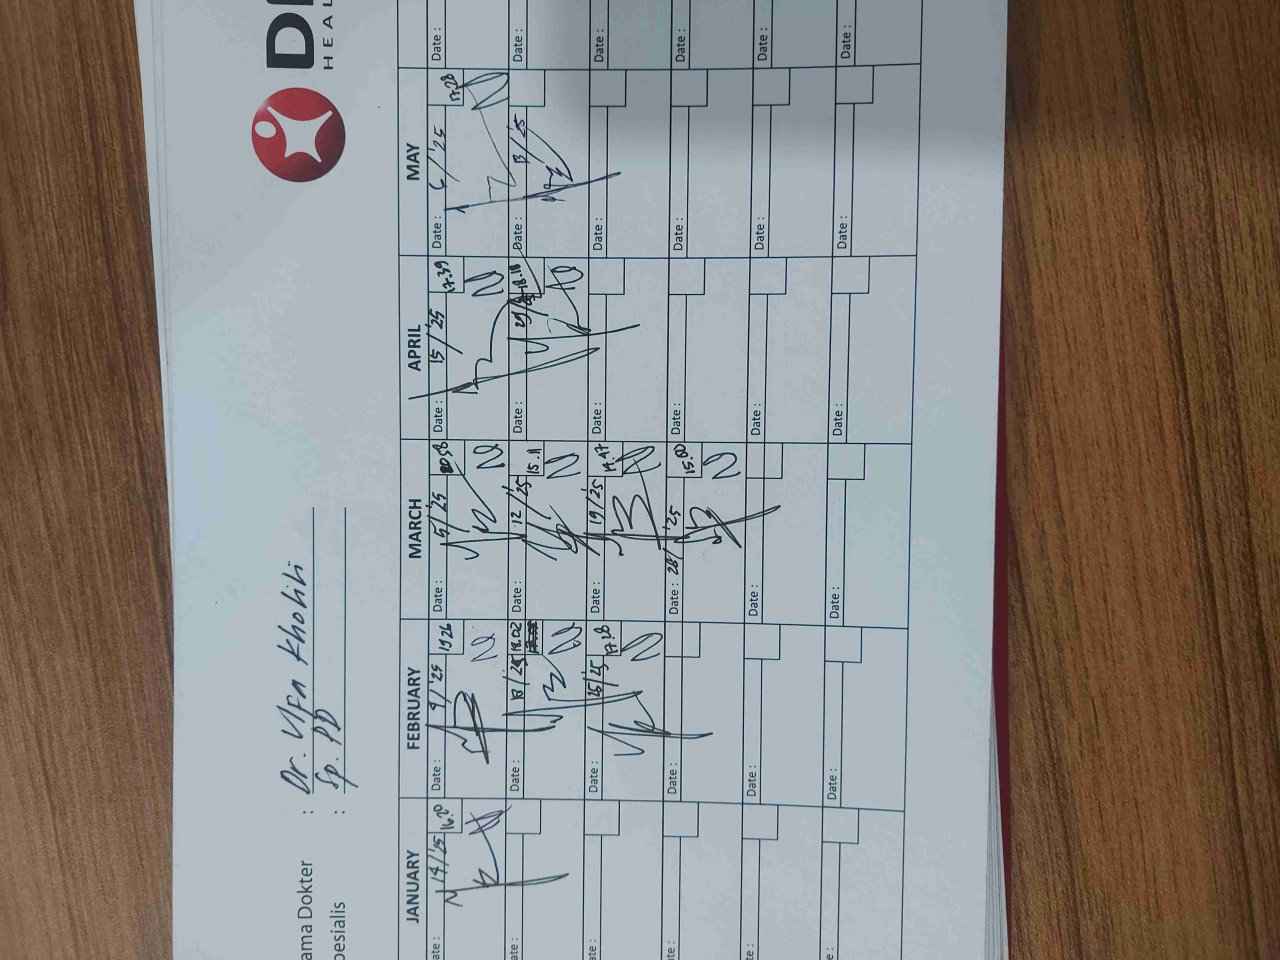 ama Dokter : Dr. Ulfa Kholili
pesialis : Sp. PD
JANUARY FEBRUARY MARCH APRIL MAY
ate: 14/'25 16.20 Date: 4/'25 19.26 Date: 5/'25 20.58 Date: 15/'25 17.39 Date: 6/'25 17.28 Date:
ate: Date: 18/'25 18.02 Date: 12/'25 15.11 Date: 29/ 18.18 Date: 13/'25 Date:
ate: Date: 25/'25 17.28 Date: 19/25 Date: Date: Date:
ate: Date: Date: 28/'25 15.00 Date: Date: Date:
te: Date: Date: Date: Date: Date:
e: Date: Date: Date: Date: Date: